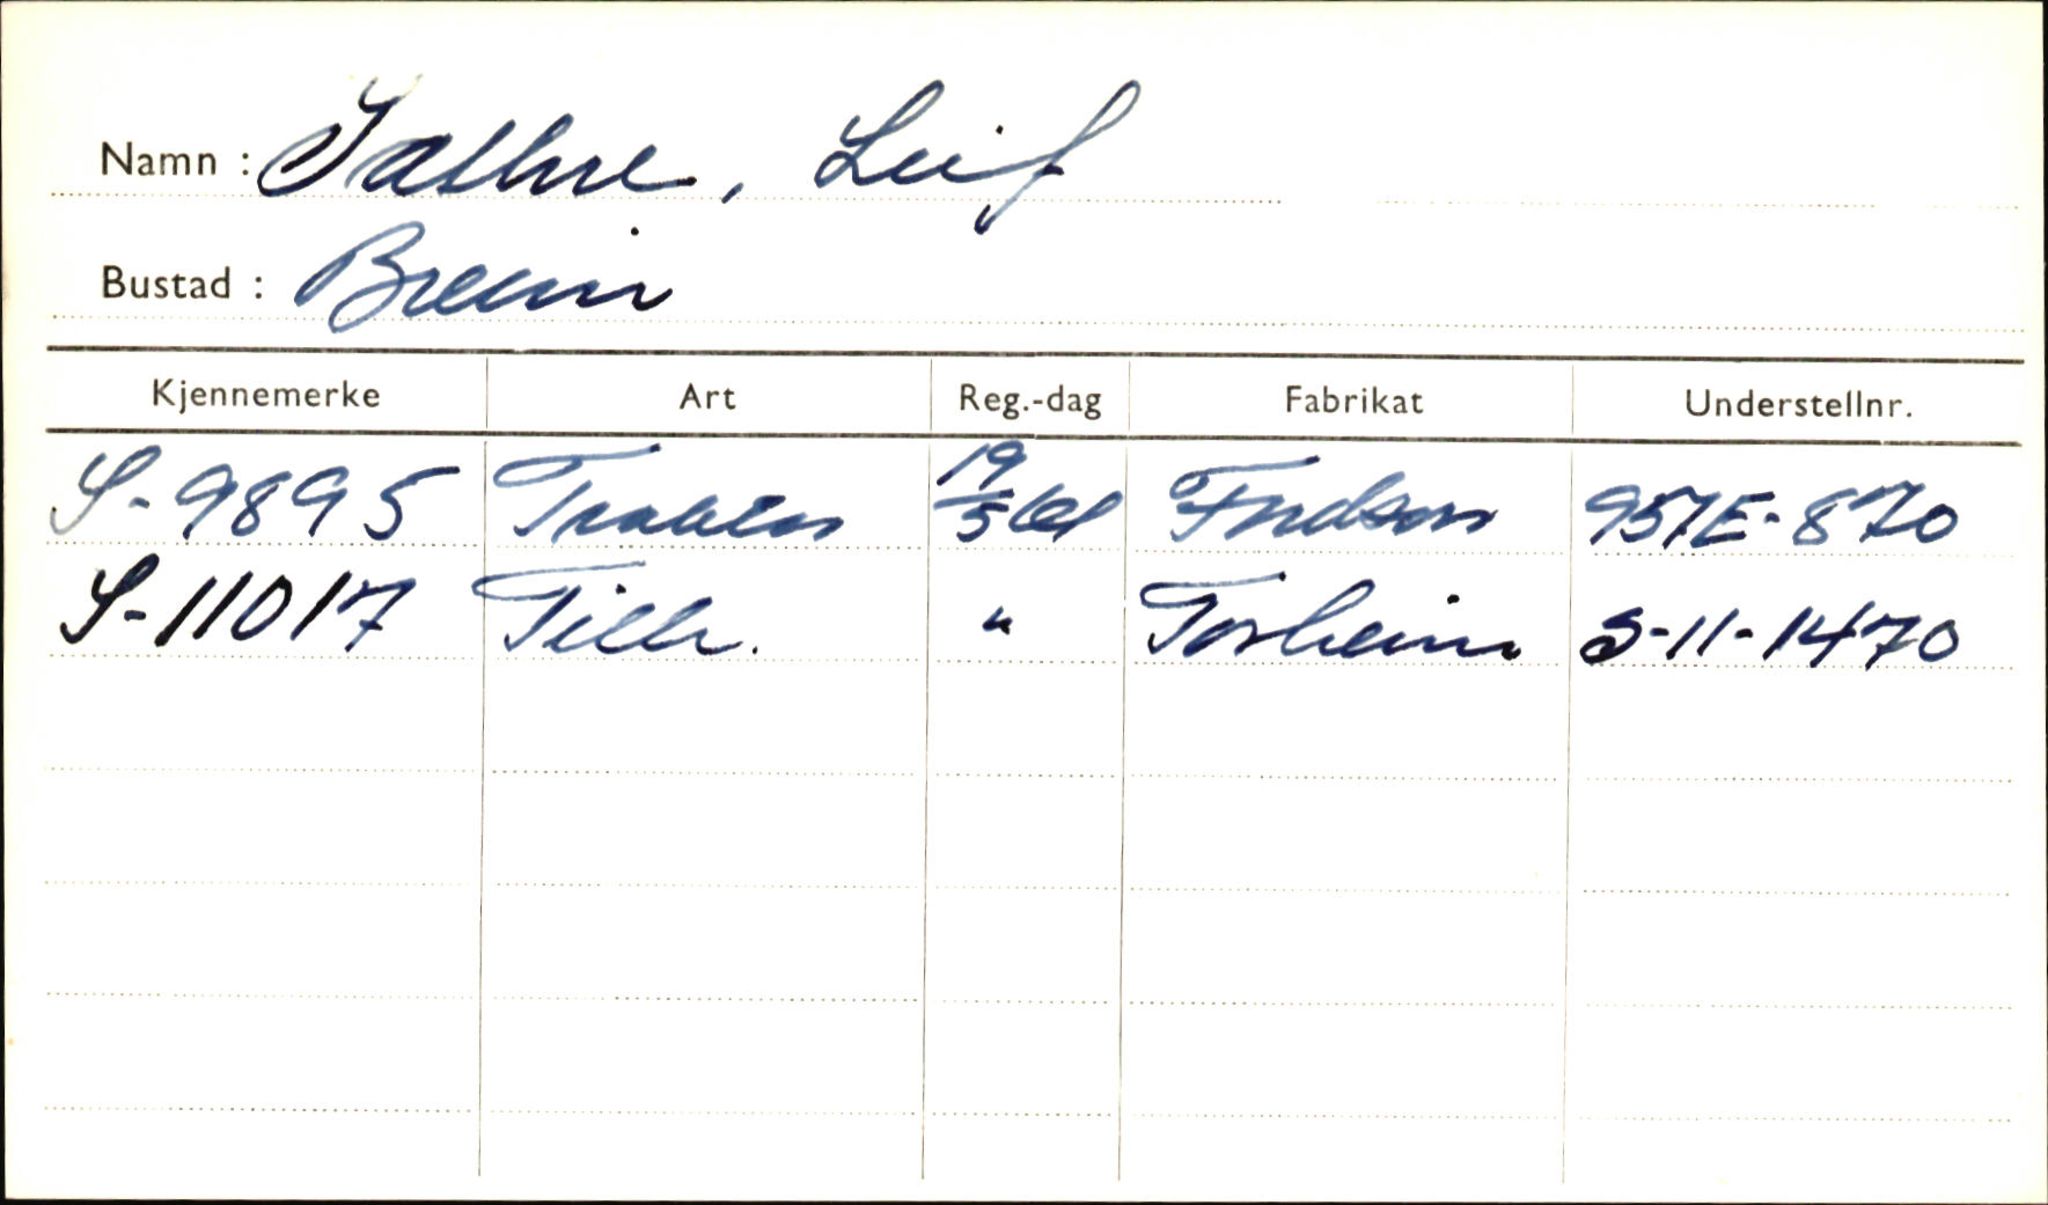 Namn : Sathre, Leif
Bustad : Breim
Kjennemerke Art Reg.-dag Fabrikat Understellnr.
S-9895 Traktor 19/5 61 Fordson 957E-870
S-11017 Tilh. " Torheim S-11-1470